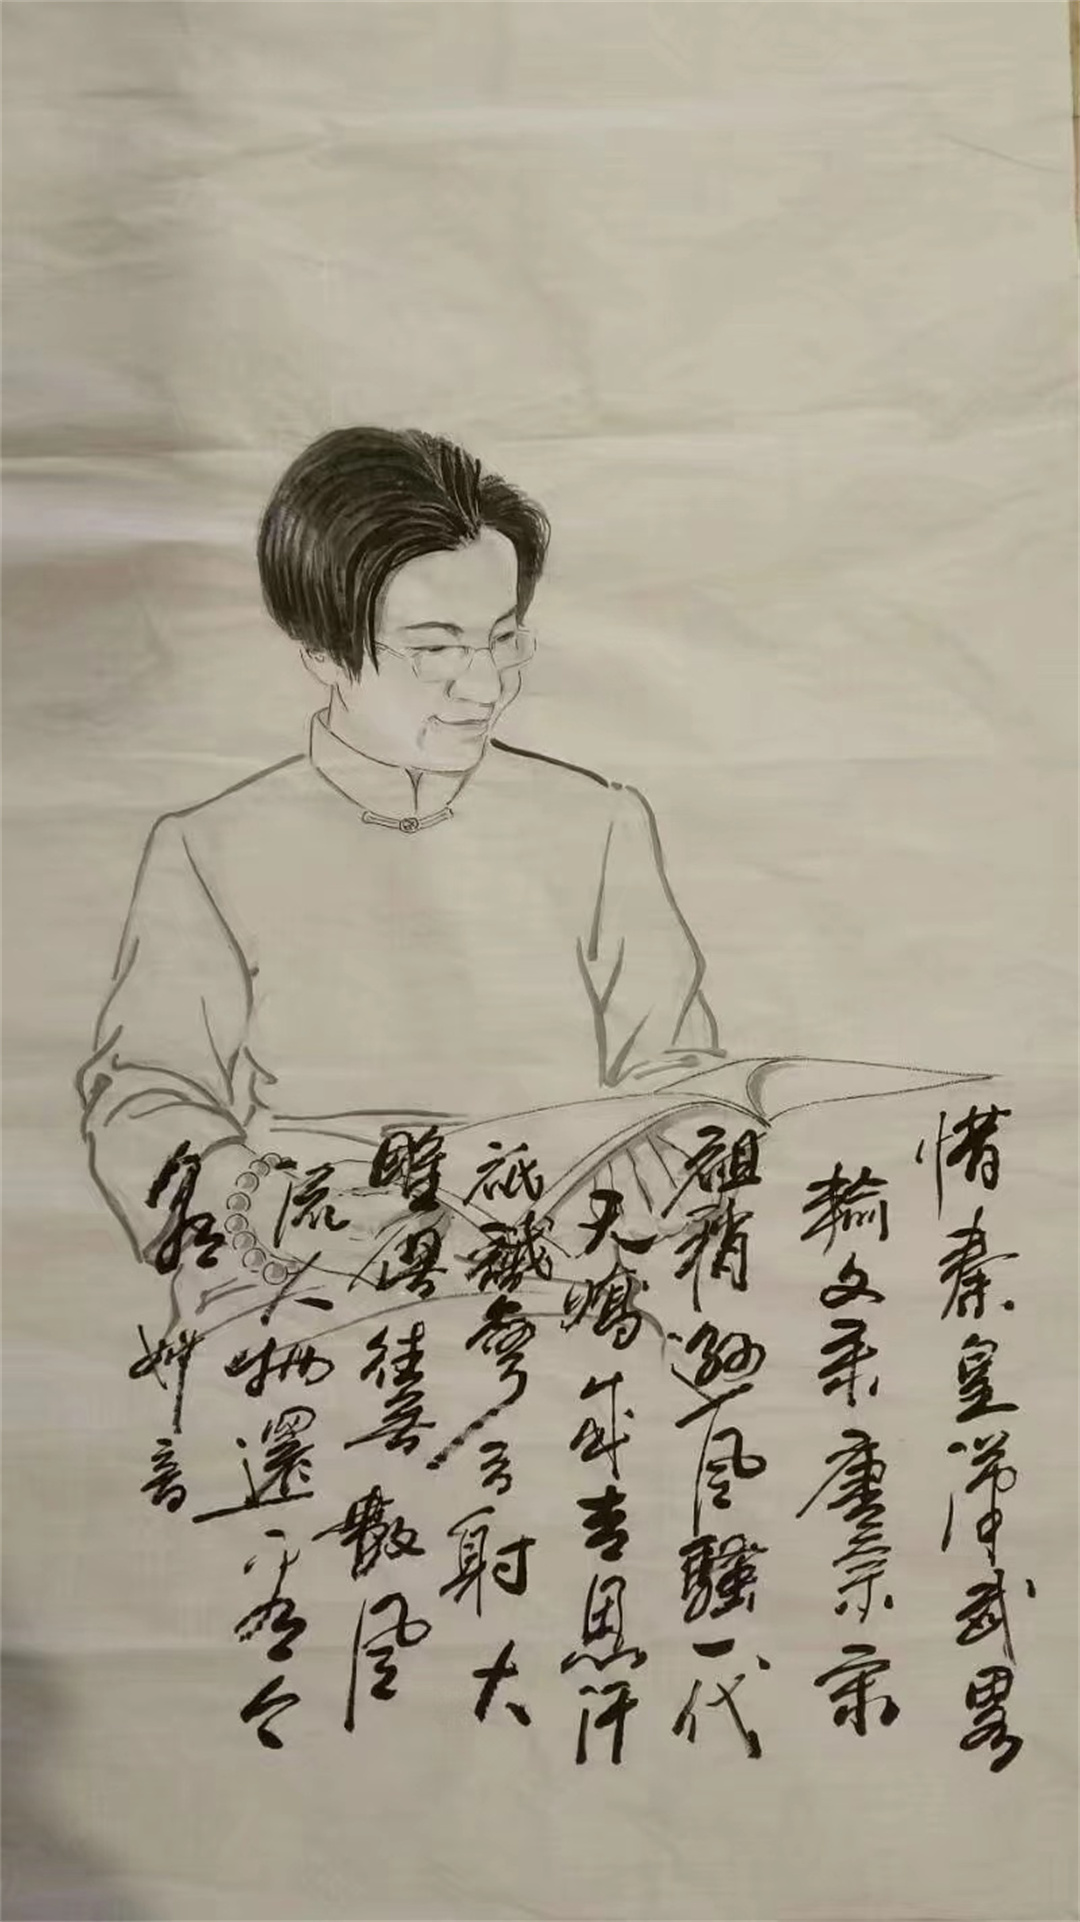 惜秦皇漢武略
輸文采唐宗宋
祖稍遜風騷一代
天驕成吉思汗
祇識彎弓射大
雕俱往矣數風
流人物還看今
音